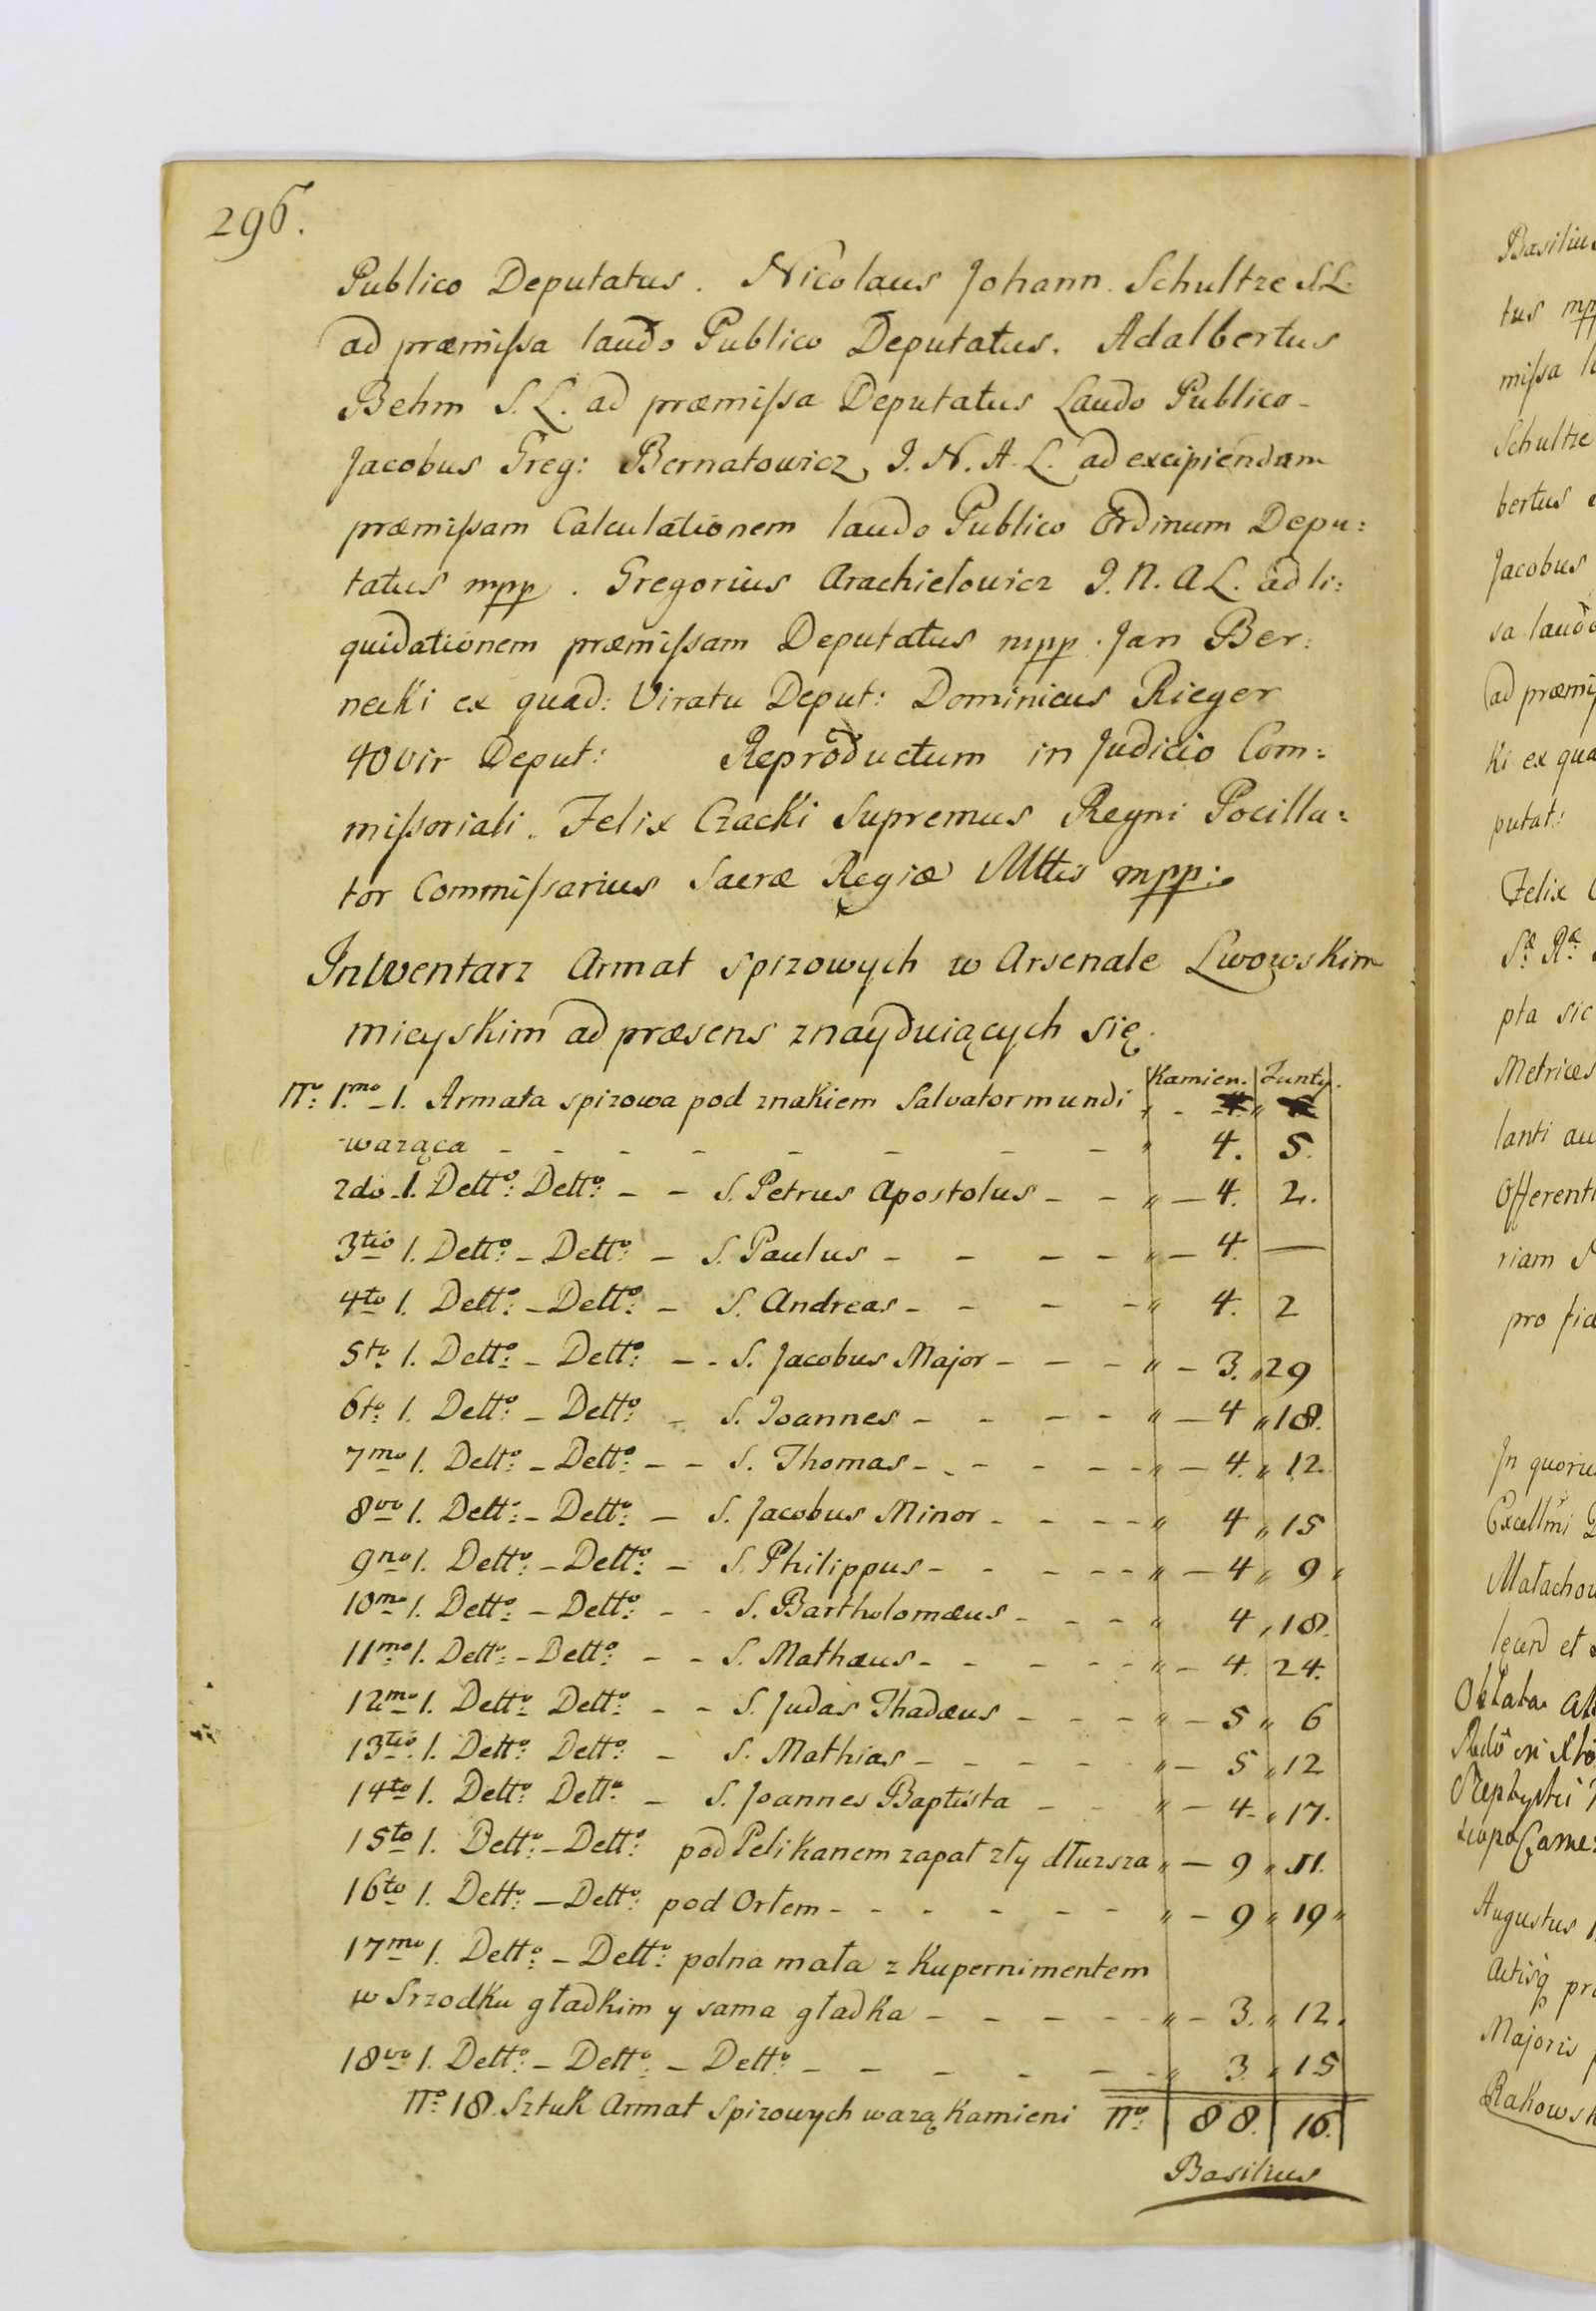 296.
Publico Deputatus. Nicolaus Johann. Schultze S.L.
ad præmissa laudo Publico Deputatus. Adalbertus
Behm S.L. ad præmissa Deputatus Laudo Publico-
Jacobus Greg: Bernatowicz J.N.A.L. ad excipiendam
præmissam Calculationem laudo Publico Ordinum Depu:
tatus mpp. Gregorius Arachielowicz J.N.A.L. ad li:
quidationem præmissam Deputatus mpp. Jan Ber:
necki ex quad: Viratu Deput: Dominicus Rieger
40vir Deput: Reproductum in Judicio Com:
missoriali. Felix Czacki Supremus Regni Pocilla:
tor Commissarius Sacræ Regiæ Mttis mpp:
Inwentarz Armat spizowych w Arsenale Lwowskim
mieyskim ad præsens znayduiących się.
Kamien. Funty.
No: 1mo-1. Armata spizowa pod znakiem Salvatormundi
ważąca - - - - - - - - " 4. 5.
2do-1. Detto: Detto: - - S. Petrus Apostolus - - " - 4. 2.
3tio 1. Detto: - Detto: - S. Paulus - - - - " - 4. —
4to 1. Detto: - Detto: - S. Andreas - - - - " 4. 2
5to 1. Detto: - Detto: - - S. Jacobus Major - - - " - 3. " 29
6to: 1. Detto: - Detto: - S. Joannes - - - - " - 4 " 18.
7mo 1. Detto: - Detto: - - S. Thomas - - - - - - " - 4. " 12.
8vo 1. Detto: - Detto: - S. Jacobus Minor - - - - " 4 " 15
9no 1. Detto: - Detto: - S. Philippus - - - - - " - 4 " 9 "
10mo 1. Detto: - Detto: - - S. Bartholomæus - - - " 4 " 18.
11mo 1. Detto: - Detto: - - S. Mathæus - - - - - " - 4. 24.
12mo 1. Detto: Detto: - - S. Judas Thadæus - - - " - 5 " 6
13tio: 1. Detto: Detto: - S. Mathias - - - - - " - 5 " 12
14to 1. Detto: Detto: - S. Joannes Baptista - - " - 4 - " 17.
15to 1. Detto: - Detto: pod Pelikanem zapał zły dłuzsza " - 9 " 11.
16to 1. Detto: - Detto: pod Orłem - - - - - - " - 9 " 19 "
17mo 1. Detto: - Detto: polna mała z Kupernimentem
w Srzodku gładkim y sama gładka - - - - - " - 3. " 12.
18vo 1. Detto: - Detto: - Detto: - - - - - - " 3. " 15
No: 18. Sztuk Armat Spizowych ważą Kamieni No: 88. 16.
Basilius
Basiliu
tus mpp
missa
Schultze
bertus
Jacobus
sa laudo
ad præmi
ki ex qua
putat:
Felix
pta sic
Metrices
lanti au
Offerent
riam
pro fid
In quoru
Małachow
Augustus
pr
Majoris
Rakowsk